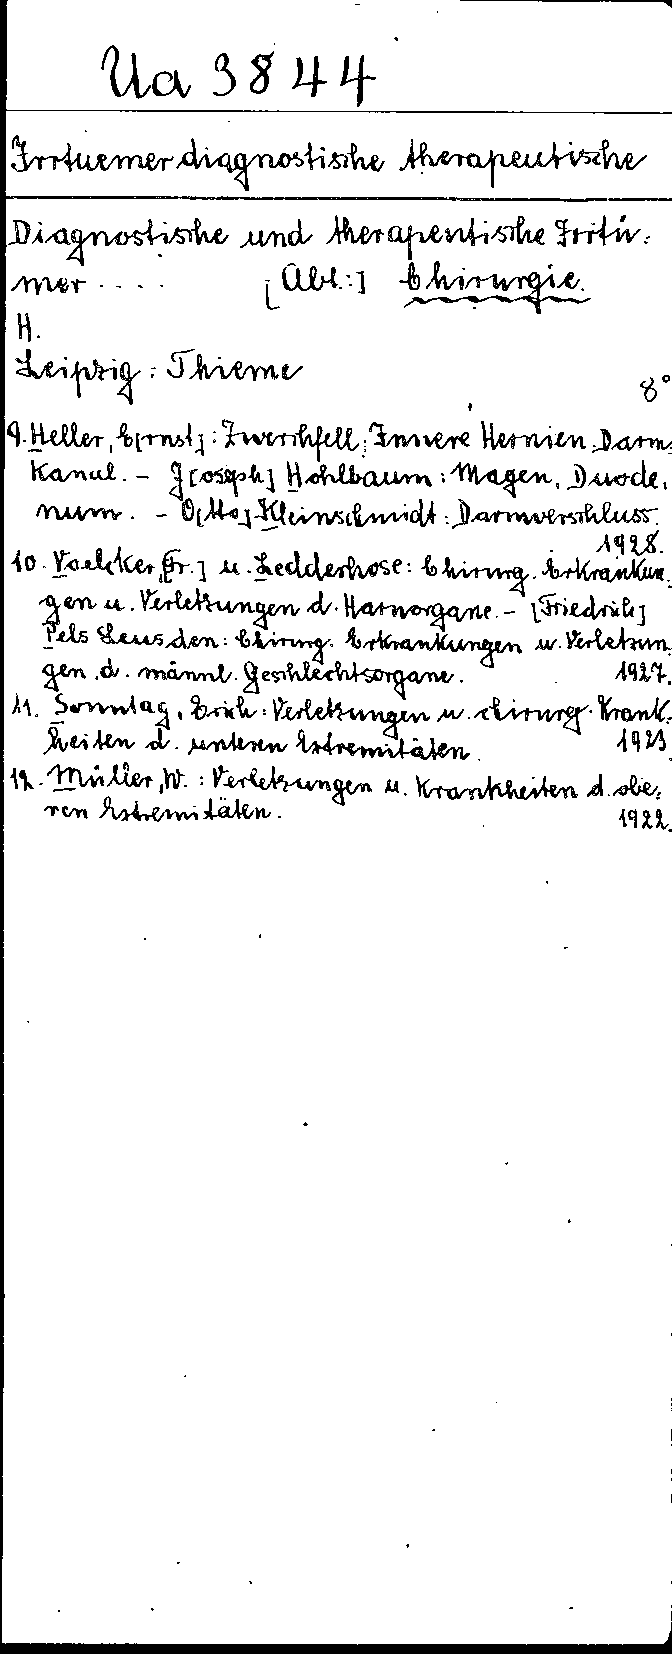 Ua 3844
Irrtuemer diagnostische therapeutische
Diagnostische und therapeutische Irrtü-
mer .... [Abt.:] Chirurgie.
H.
Leipzig: Thieme
8°
9. Heller, E[rnst]: Zwerchfell; Innere Hernien. Darm-
Kanal. - J[oseph] Hohlbaum: Magen, Duode-
num. - O[tto] Kleinschmidt: Darmverschluss.
1928.
10. Voelcker, [Fr.] u. Ledderhose: Chirurg. Erkrankun-
gen u. Verletzungen d. Harnorgane. - [Friedrich]
Pels Leusden: Chirurg. Erkrankungen u. Verletzun-
gen d. männl. Geschlechtsorgane. 1927.
11. Sonntag, Erich: Verletzungen u. chirurg. Krank-
heiten d. unteren Extremitäten. 1923
12. Müller, W.: Verletzungen u. Krankheiten d. obe-
ren Extremitäten. 1922.